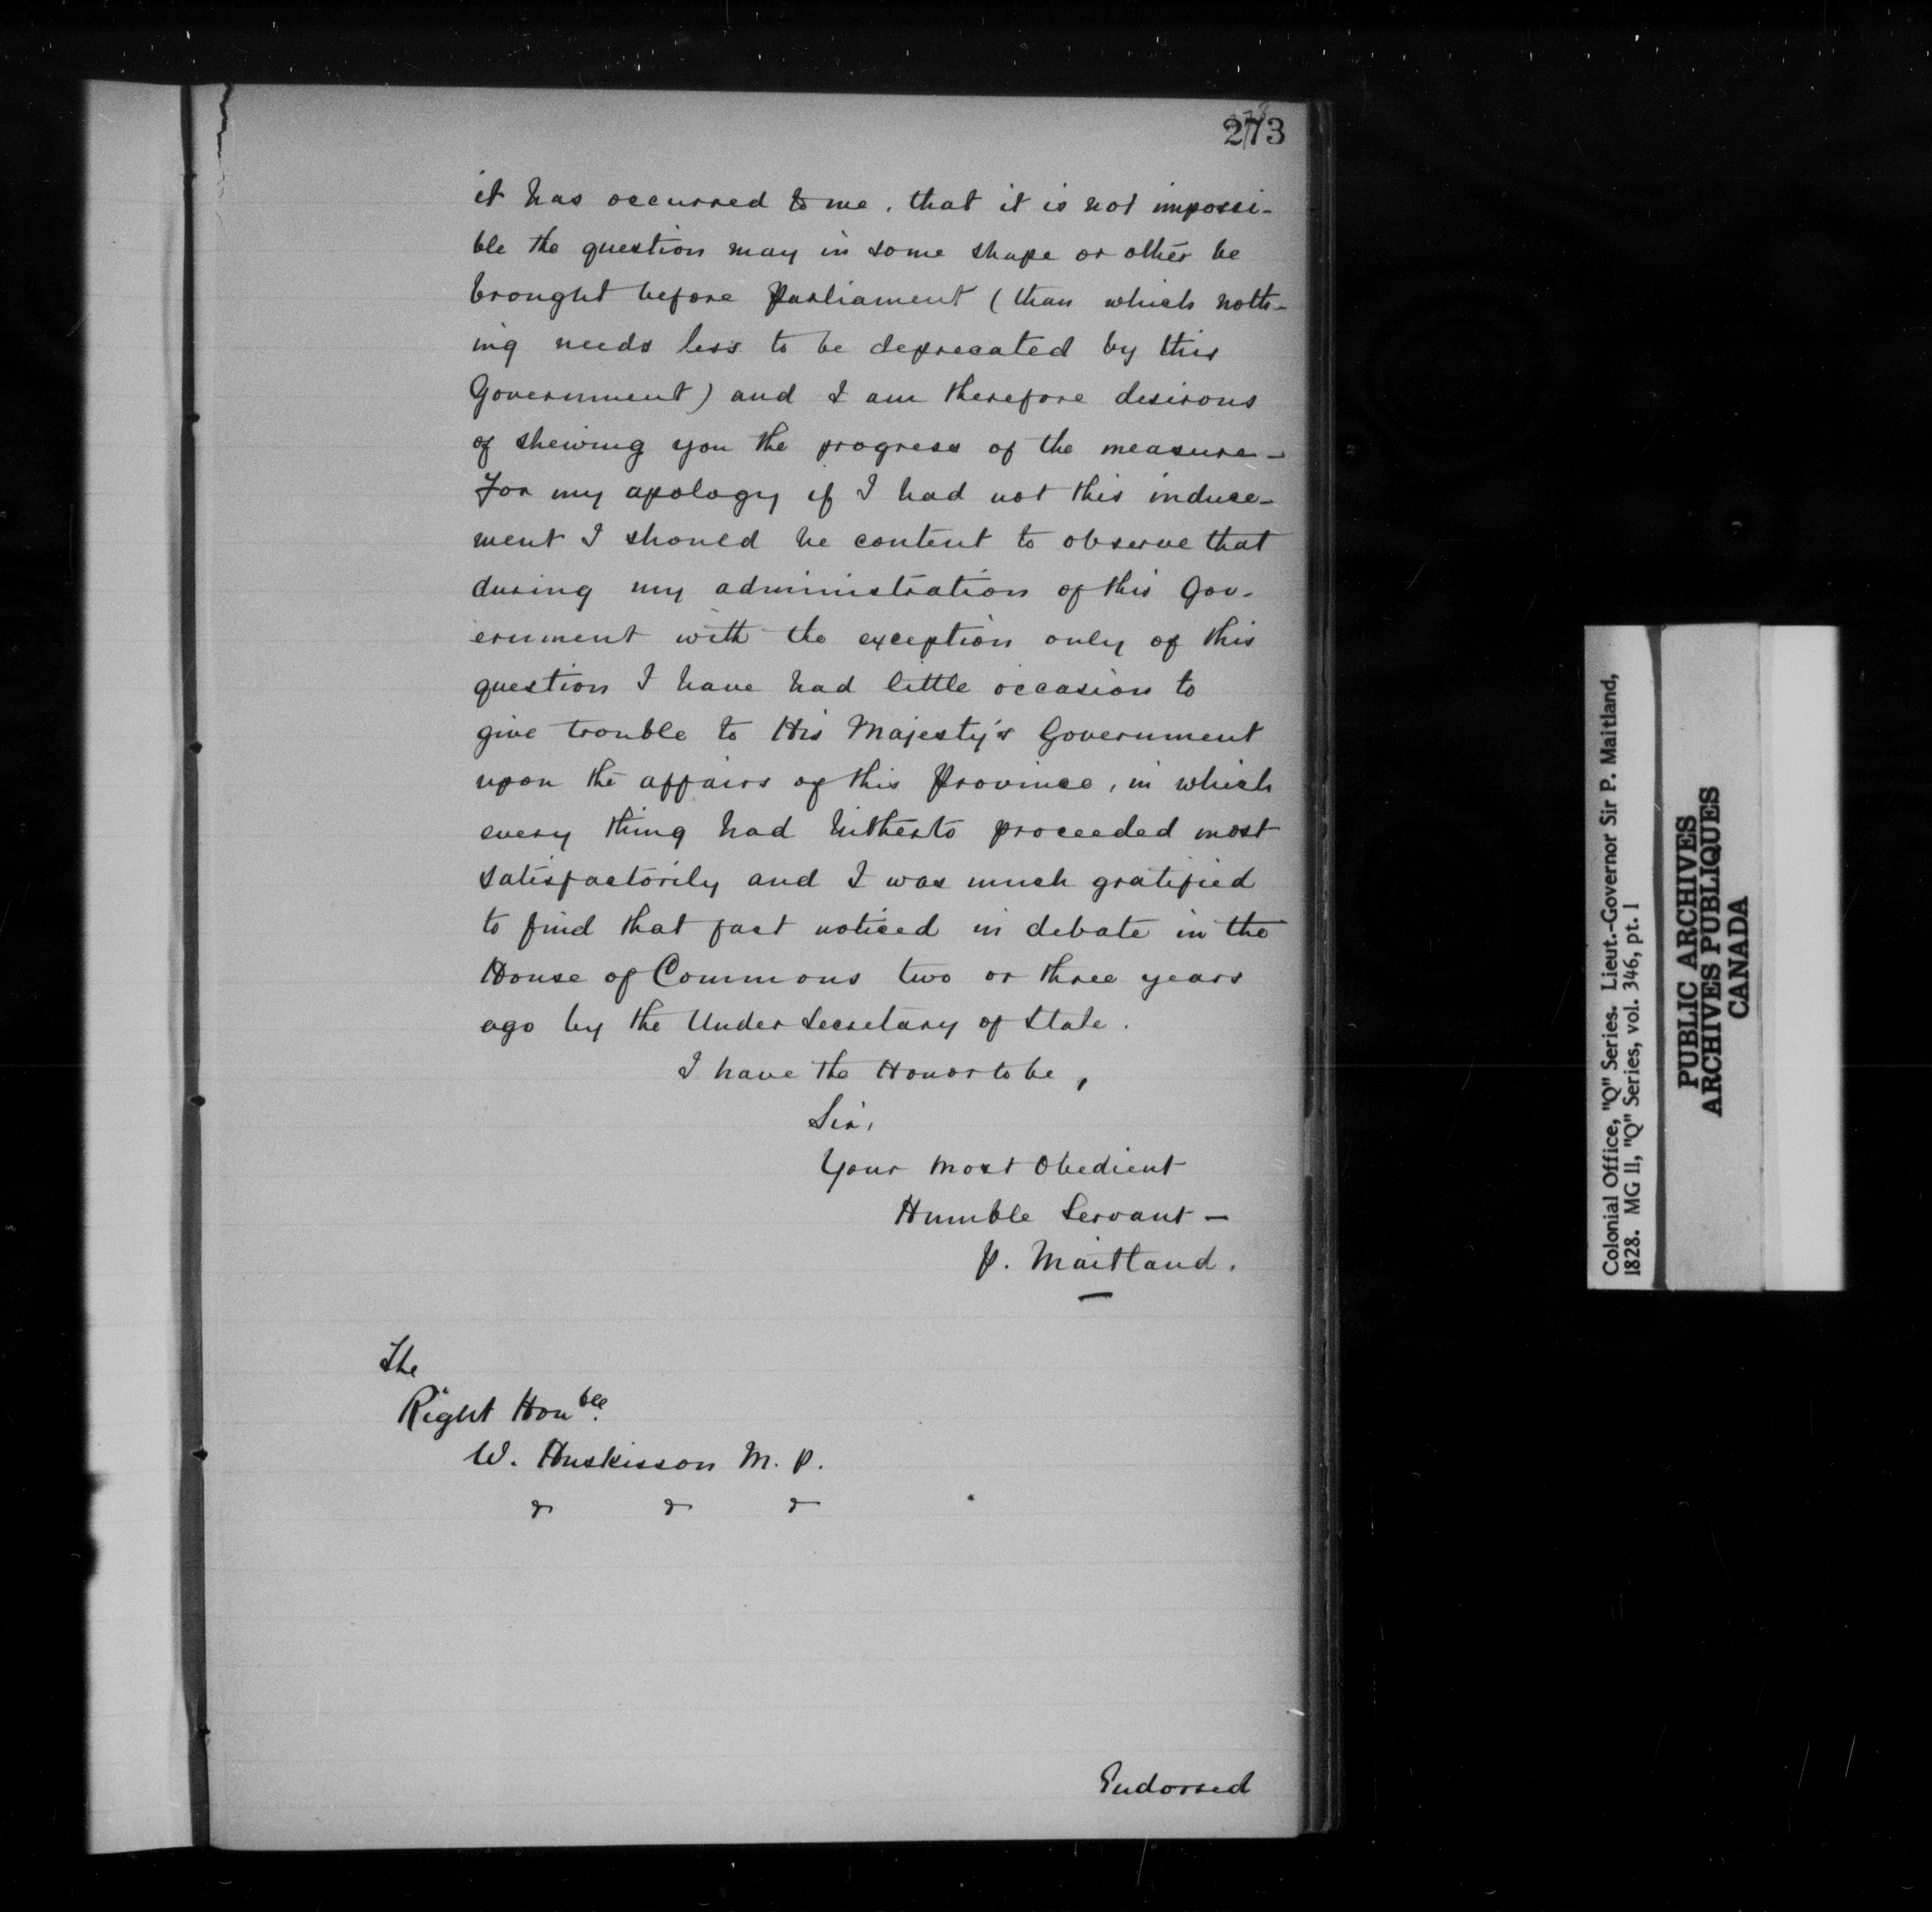 273
it has occurred to me, that it is not impossi-
ble the question may in some shape or other be
brought before Parliament (than which noth-
ing needs less to be deprecated by this
Government) and I am therefore desirous
of shewing you the progress of the measure -
For my apology if I had not this induce-
ment I should be content to observe that
during my administration of this Gov-
ernment with the exception only of this
question I have had little occasion to
give trouble to His Majesty's Government
upon the affairs of this Province, in which
every thing had hitherto proceeded most
satisfactorily and I was much gratified
to find that fact noticed in debate in the
House of Commons two or three years
ago by the Under Secretary of State.
I have the Honor to be,
Sir,
Your Most Obedient
Humble Servant -
P. Maitland.
The
Right Honble.
W. Huskisson M. P.
& & &
Endorsed
Colonial Office, "Q" Series. Lieut.-Governor Sir P. Maitland,
1828. MG 11, "Q" Series, vol. 346, pt. 1
PUBLIC ARCHIVES
ARCHIVES PUBLIQUES
CANADA